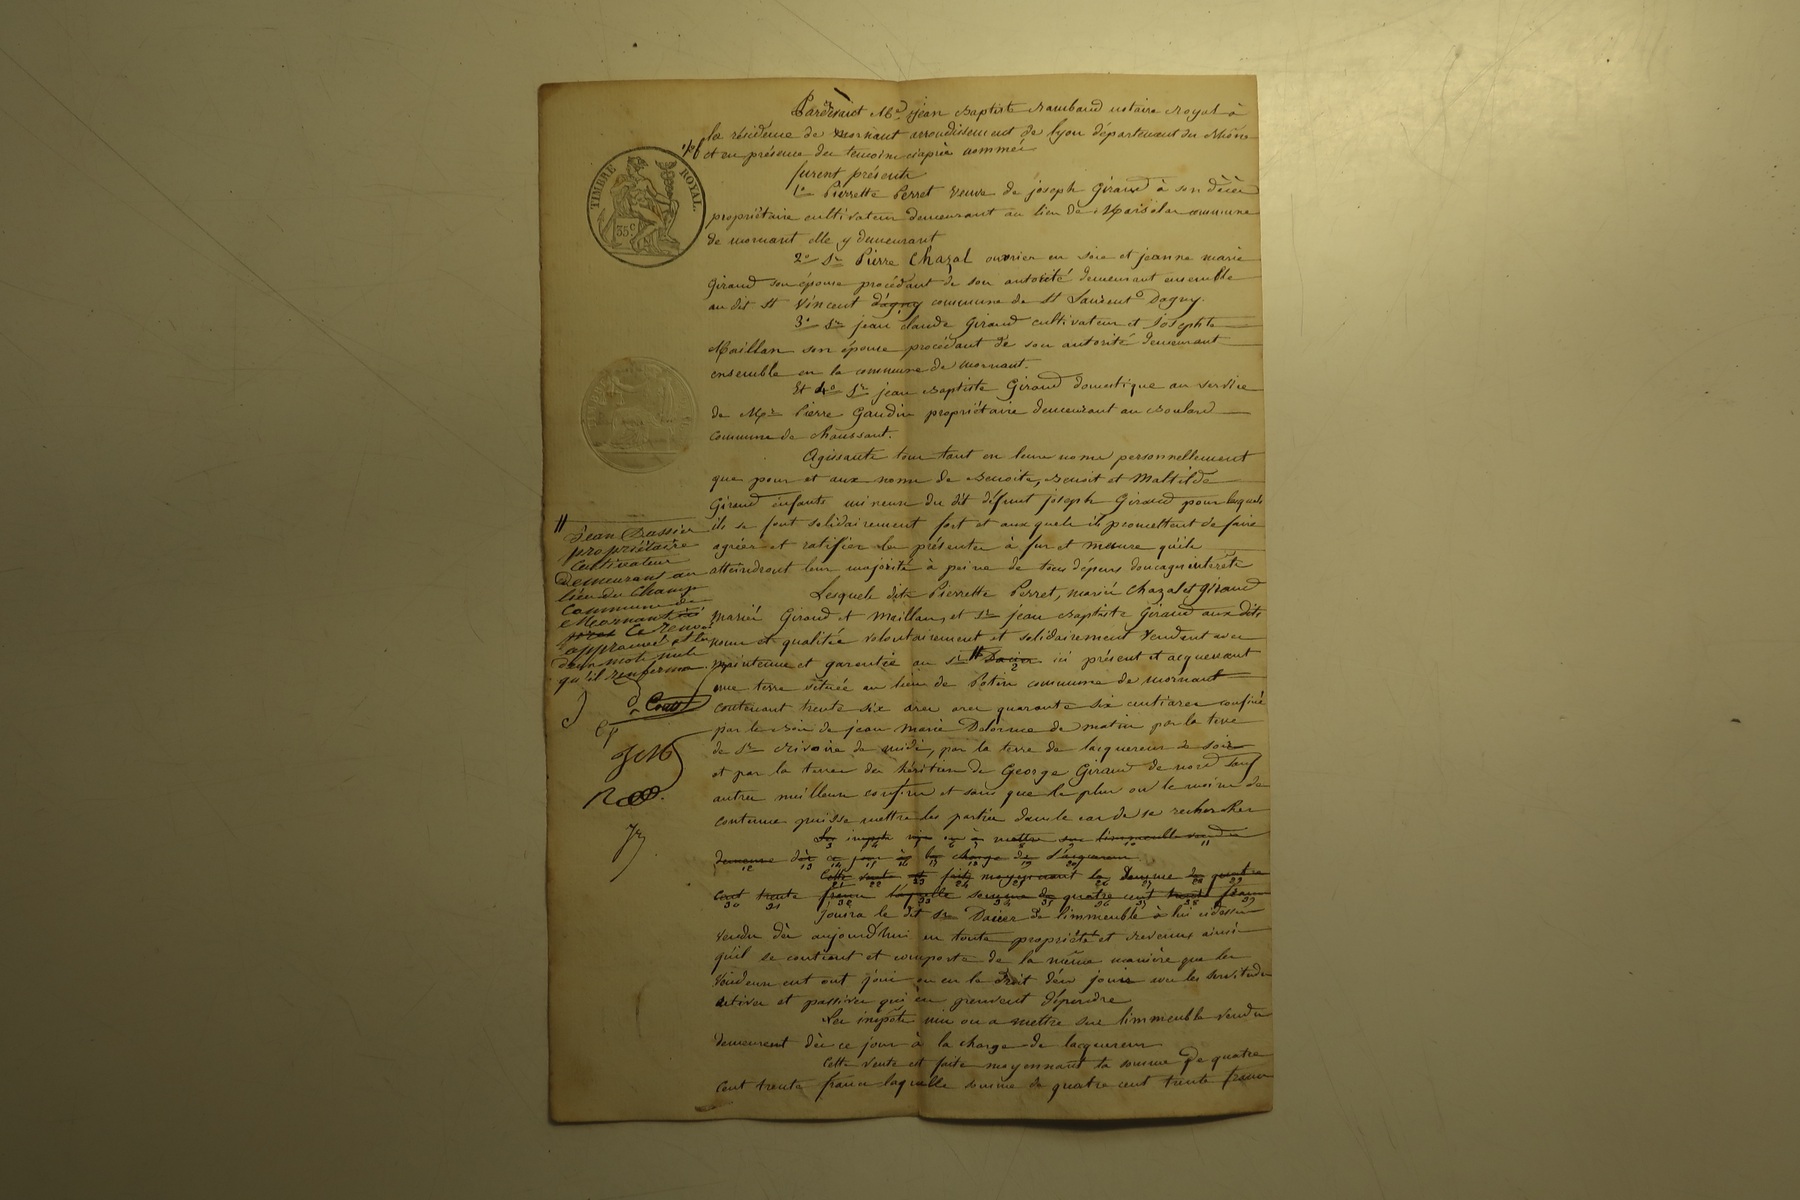 Pardevant Me jean Baptiste Rambaud notaire Royal à
la résidence de Mornant arrondissement de lyon département du Rhône
et en présence des temoins ciaprès nommés
furent présents
TIMBRE ROYAL.
35 c
1o Pierrette Perret Veuve de joseph Giraud à son décès
propriétaire cultivateur demeurant au lieu de commune
de mornant elle y demeurant
2o Sr Pierre Chazal ouvrier en soie et jeanne marie
Giraud son épouse procédant de son autorité demeurant ensemble
au dit St Vincent d'agny commune de St Laurent Dagny.
3o Sr jean claude Giraud cultivateur et josephte
Maillan son épouse procédant de son autorité demeurant
ensemble en la commune de Mornant.
Et 4o Sr jean Baptiste Giraud domestique au service
de Mr Pierre Gaudin propriétaire demeurant au Boulard
commune de Chaussant.
Agissants tous tant en leurs noms personnellement
que pour et aux noms de Benoite, Benoit et Mathilde
Giraud enfants mineurs du dit défunt joseph Giraud pour lesquels
ils se font solidairement fort et aux quels ils promettent de faire
agréer et ratifier les présentes à fur et mesure qu'ils
atteindront leur majorité à peine de tous dépens
Lesquels dits Pierrette Perret, mariés Chazal et Giraud
mariés Giraud et Maillan, et Sr jean Baptiste Giraud aux dits
noms et qualités volontairement et solidairement Vendent avec
maintenue et garantie au Sr # Dacier ici présent et acquerant
2
une terre située au lieu de Potin commune de Mornant
contenant trente six ares quarante six centiares confiné
par le Bois de jean Marie Delorme de matin par la terre
de Sr Rivoire de midi, par la terre de lacquereur de soir
et par la terre des héritiers de George Giraud de nord sauf
autres meilleurs confins et sans que le plus ou le moins de
contenue puisse mettre les parties dans le cas de se rechercher
Les impots mis ou à mettre sur limmeuble vendu
3 4 5 6 7 8 9 10 11
demeurent dès ce jour à la charge de l'acquereur
12 13 14 15 16 17 18 19 20
Cette vente est faite moyennant la somme de quatre
21 22 23 24 25 26 27 28 29
cent trente francs laquelle somme de quatre cent trente francs
30 31 32 33 34 35 36 37 38 39
jouira le dit Sr Dacier de l'immeuble à lui cidessus
vendu dès aujourd'hui en toute propriété et revenus ainsi
qu'il se contient et comporte de la même manière que les
Vendeurs en ont joui ou eu le droit d'en jouir avec les servitudes
actives et passives qui en peuvent dépendre
Les impôts mis ou a mettre sur limmeuble vendu
demeurent dès ce jour à la charge de lacquereur
Cette vente est faite moyennant la somme de quatre
cent trente francs laquelle somme de quatre cent trente francs
# Jean Dassier
propriétaire
Cultivateur
Demeurant au
lieu du Champ
Commune de
Mornant
Ce renvoi
approuvé et les
deux mots nuls
qu'il renferme.